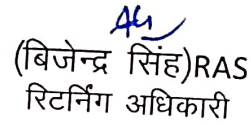 (बिजेन्द्र सिंह)RAS
रिटर्निंग अधिकारी